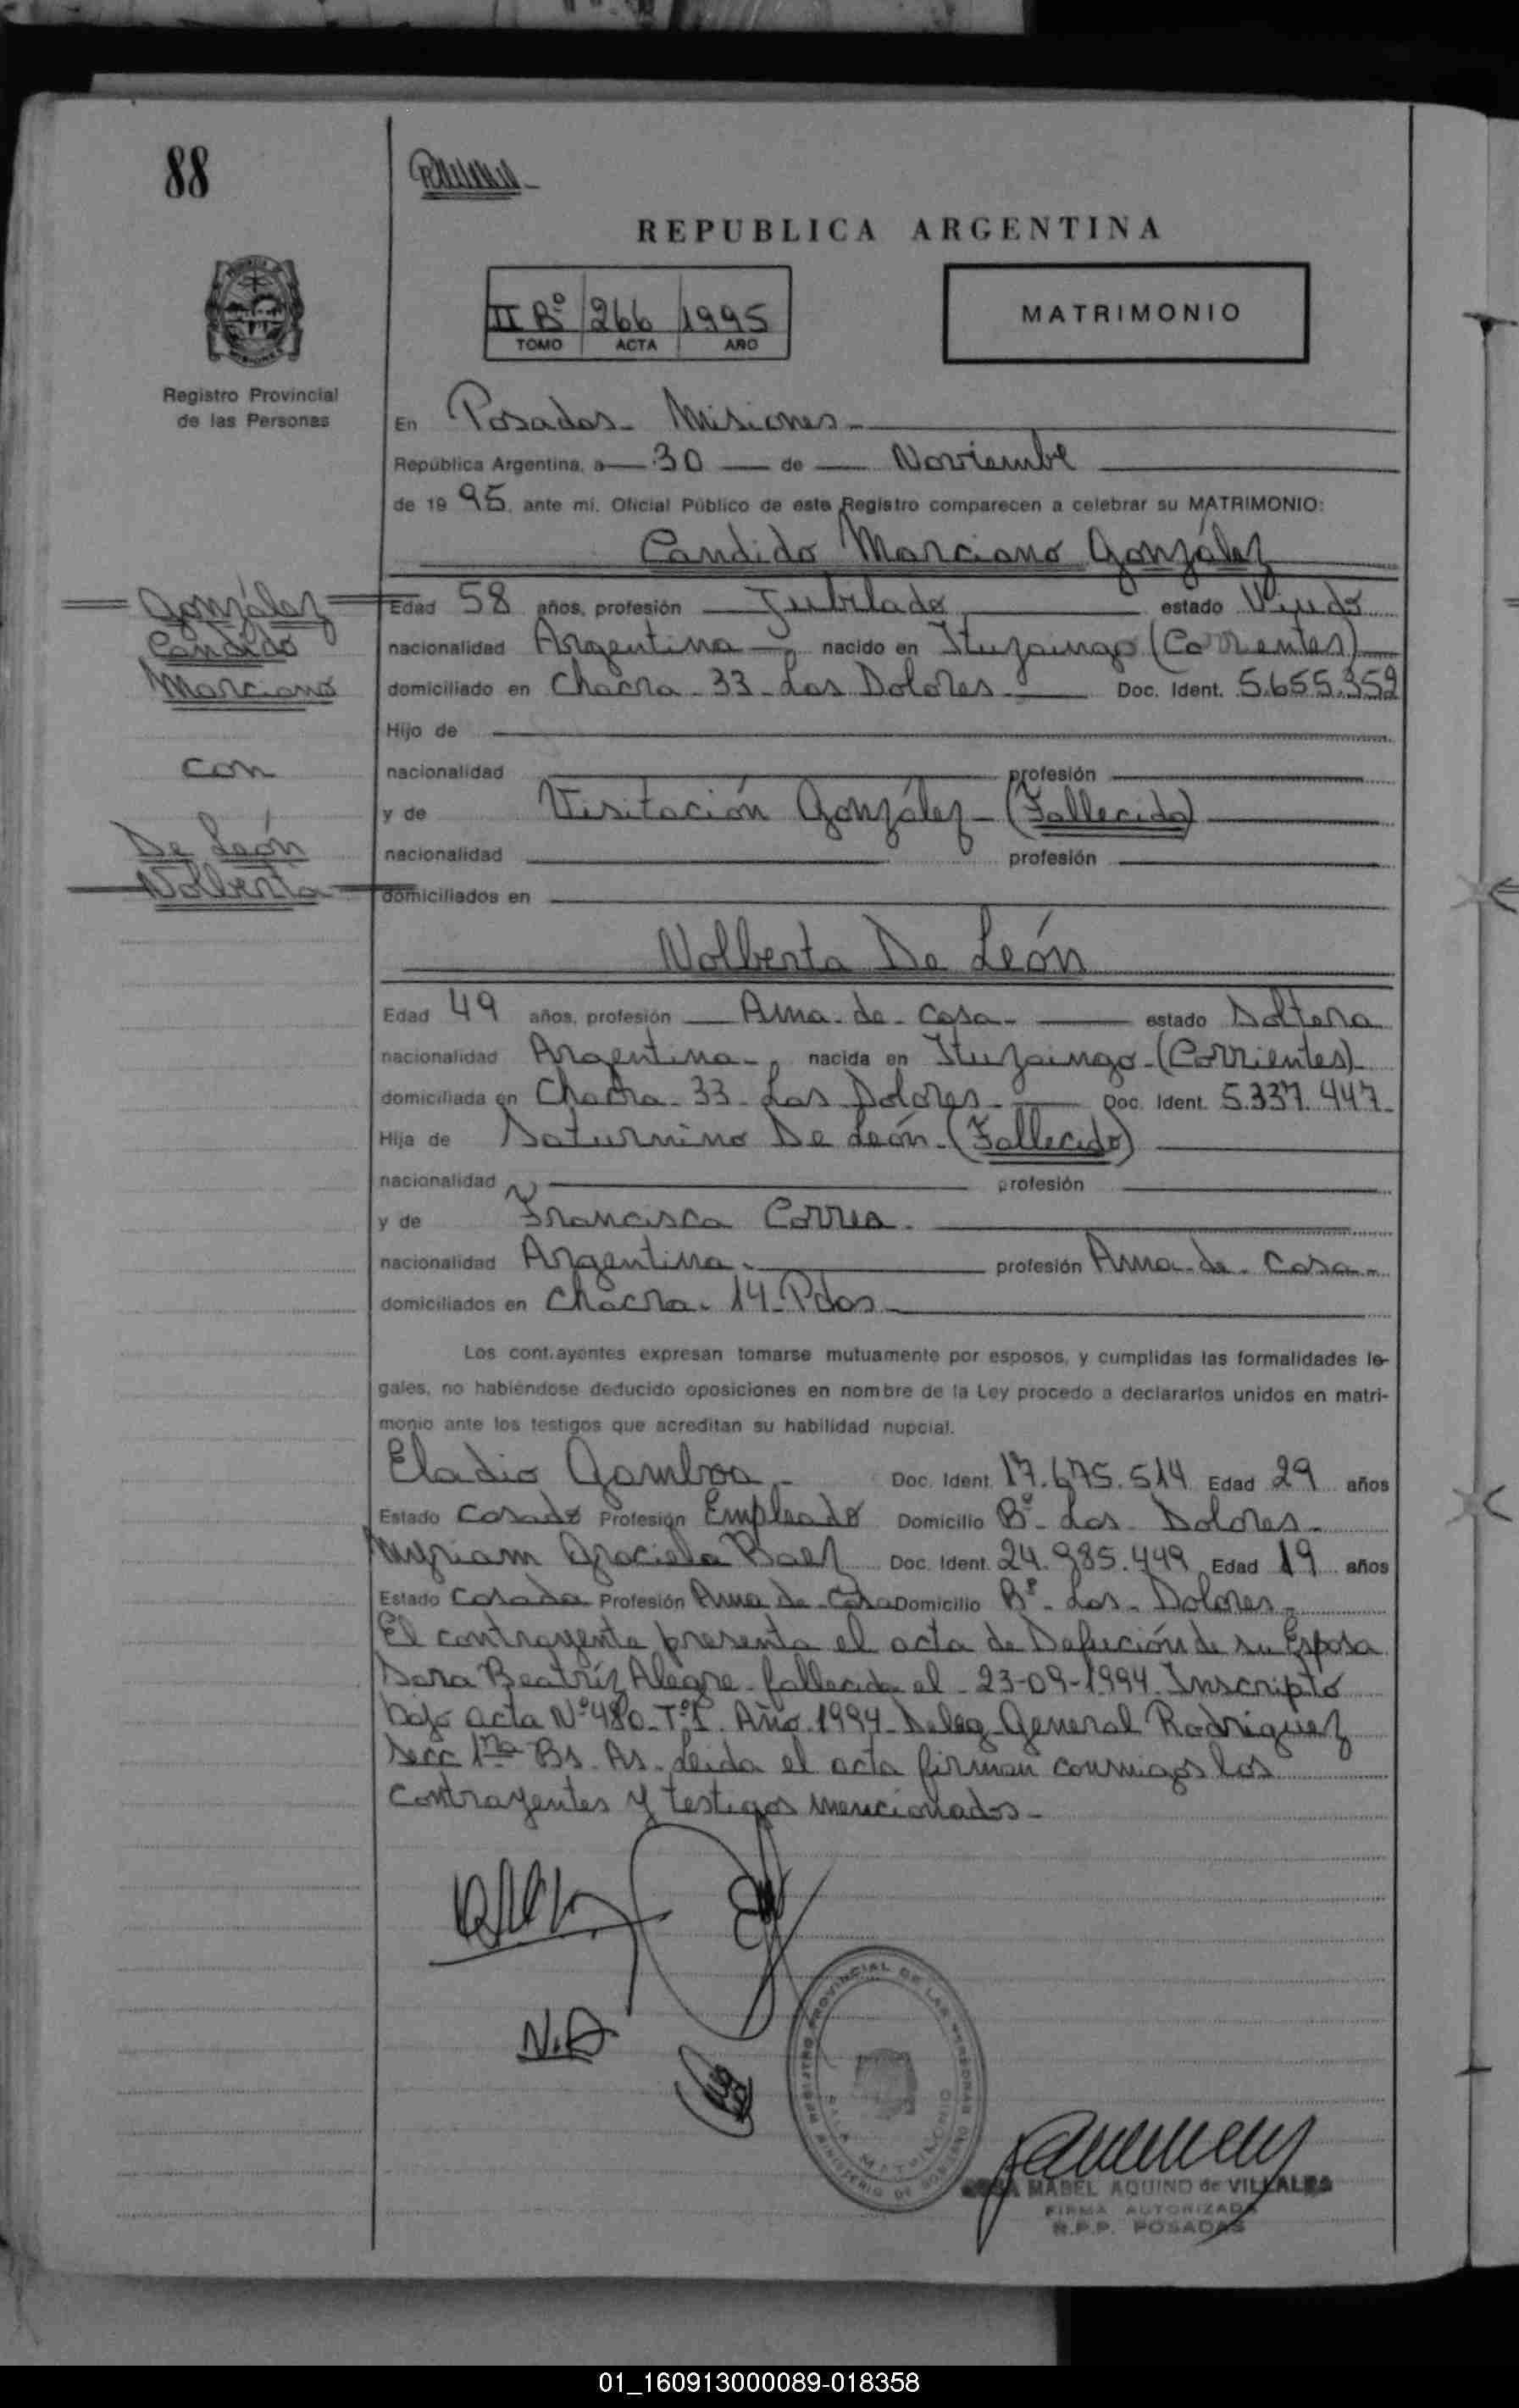 88
REPUBLICA ARGENTINA
II Bº 266 1995
TOMO ACTA AÑO
MATRIMONIO
Registro Provincial
de las Personas
En Posadas - Misiones -
República Argentina, a 30 de Noviembre
de 1995, ante mi, Oficial Público de este Registro comparecen a celebrar su MATRIMONIO:
Candido Marciano González
González
Candido
Marciano
con
De León
Nolberta
Edad 58 años, profesión Jubilado estado Viudo
nacionalidad Argentina - nacido en Ituzaingo (Corrientes)
domiciliado en Chacra - 33 - Las Dolores - Doc. Ident. 5.655.359
Hijo de
nacionalidad profesión
y de Visitación González - (Fallecida)
nacionalidad profesión
domiciliados en
Nolberta De León
Edad 49 años, profesión Ama - de - Casa - estado Soltera
nacionalidad Argentina - nacida en Ituzaingo - (Corrientes)
domiciliada en Chacra - 33 - Las Dolores - Doc. Ident. 5.337.447 -
Hija de Saturnino De León - (Fallecido)
nacionalidad profesión
y de Francisca Correa -
nacionalidad Argentina - profesión Ama - de - Casa -
domiciliados en Chacra - 14 - Pdas
Los contrayentes expresan tomarse mutuamente por esposos, y cumplidas las formalidades le-
gales, no habiéndose deducido oposiciones en nombre de la Ley procedo a declararlos unidos en matri-
monio ante los testigos que acreditan su habilidad nupcial.
Eladio Gamboa - Doc. Ident. 17.675.514 Edad 29 años
Estado Casado Profesión Empleado Domicilio Bº - Las - Dolores -
Myriam Graciela Baez Doc. Ident. 24.985.449 Edad 19 años
Estado Casada Profesión Ama de Casa Domicilio Bº - Las - Dolores -
El contrayente presenta el acta de Defución de su Esposa
Sara Beatríz Alegre - fallecida el - 23-09-1994. Inscripto
bajo acta Nº 480 - Tº I. Año 1994 - Deleg General Rodriguez
Secc 1ra Bs. As. Leida el acta firman conmigos los
contrayentes y testigos mencionados -
N.D
REGISTRO PROVINCIAL DE LAS PERSONAS
MINISTERIO DE GOBIERNO
MABEL AQUINO de VILLALBA
FIRMA AUTORIZADA
R.P.P. POSADAS
01_160913000089-018358